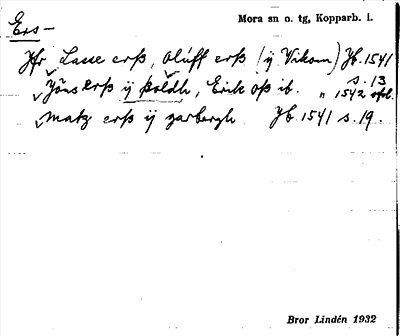 Ers-
Mora sn o. tg, Kopparb. l.
Jfr Lasse erß, Olúff erß (ÿ Vikom) Jb. 1541 s. 13
Jöns erß ÿ þoldh, Erik oß ib. " 1542
Matz erß ÿ garbergh Jb 1541 s. 19.
Bror Lindén 1932